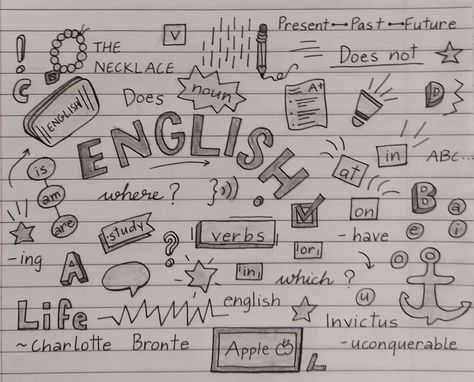 Present Past Future
! THE NECKLACE
V
Does not
C
ENGLISH
Does
noun
A+
D
ENGLISH
is
am
are
where?
at
in
ABC...
on
B
a
e
i
o
u
study
verbs
- have
-ing
A
?
or
in
which?
english
Life
Invictus
~Charlotte Bronte
-uconquerable
Apple
L